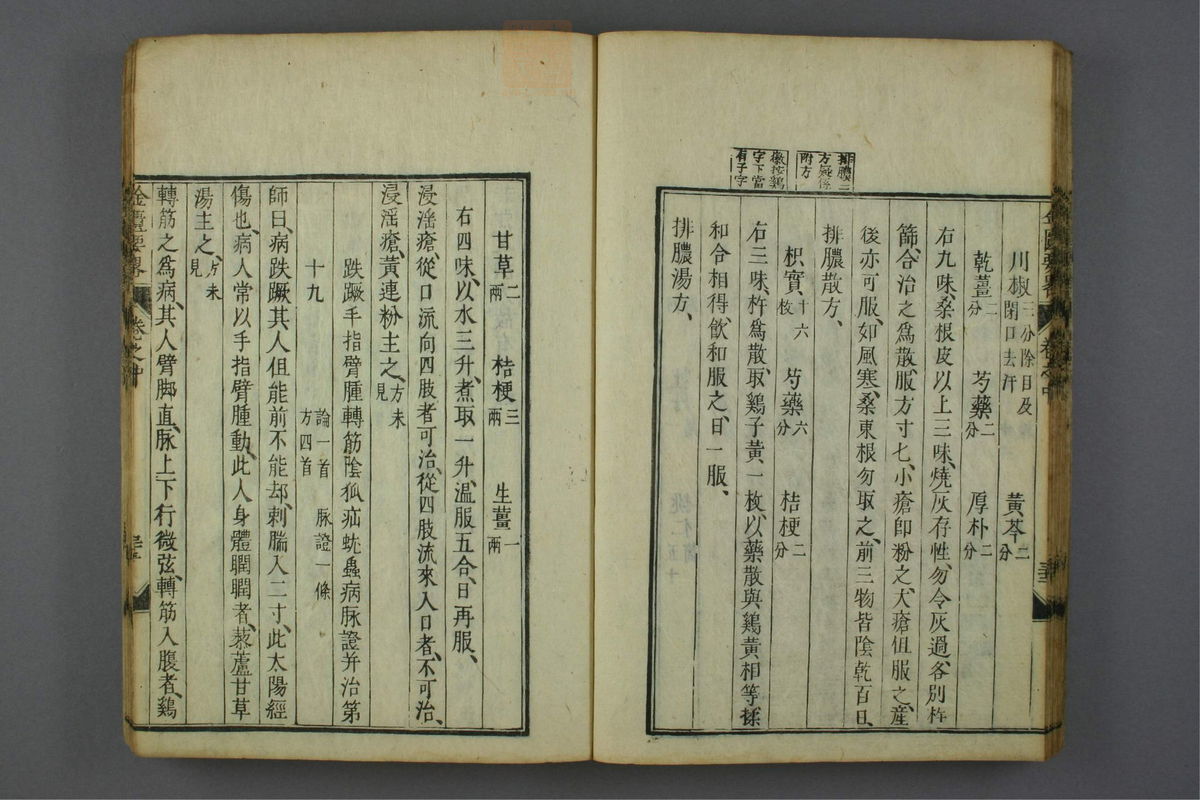 排膿二
方疑後
附方
徵按鷄
字下當
有子字
川椒三分除目及閉口去汗 黃芩二分
乾薑二分 芍藥二分 厚朴二分
右九味、桑根皮以上三味、燒灰存性、勿令灰過、各別杵
篩、合治之爲散、服方寸七、小瘡卽粉之、大瘡但服之、產
後亦可服、如風寒、桑東根勿取之、前三物皆陰乾百日、
排膿散方、
枳實十六枚 芍藥六分 桔梗二分
右三味、杵爲散、取鷄子黃一枚、以藥散與鷄黃相等、揉
和合相得、飮和服之、日一服、
排膿湯方、
甘草二兩 桔梗三兩 生薑一兩
右四味、以水三升、煮取一升、溫服五合、日再服、
浸淫瘡、從口流向四肢者可治、從四肢流來入口者、不可治、
浸淫瘡、黃連粉主之、方未見
趺蹶手指臂腫轉筋陰狐疝蚘蟲病脉證并治第
十九 論一首 脉證一條 方四首
師曰、病趺蹶其人但能前不能却、刺腨入二寸、此太陽經
傷也、病人常以手指臂腫動、此人身體瞤瞤者、藜蘆甘草
湯主之、方未見
轉筋之爲病、其人臂脚直、脉上下行微弦、轉筋入腹者、鷄
金匱要畧 卷之中